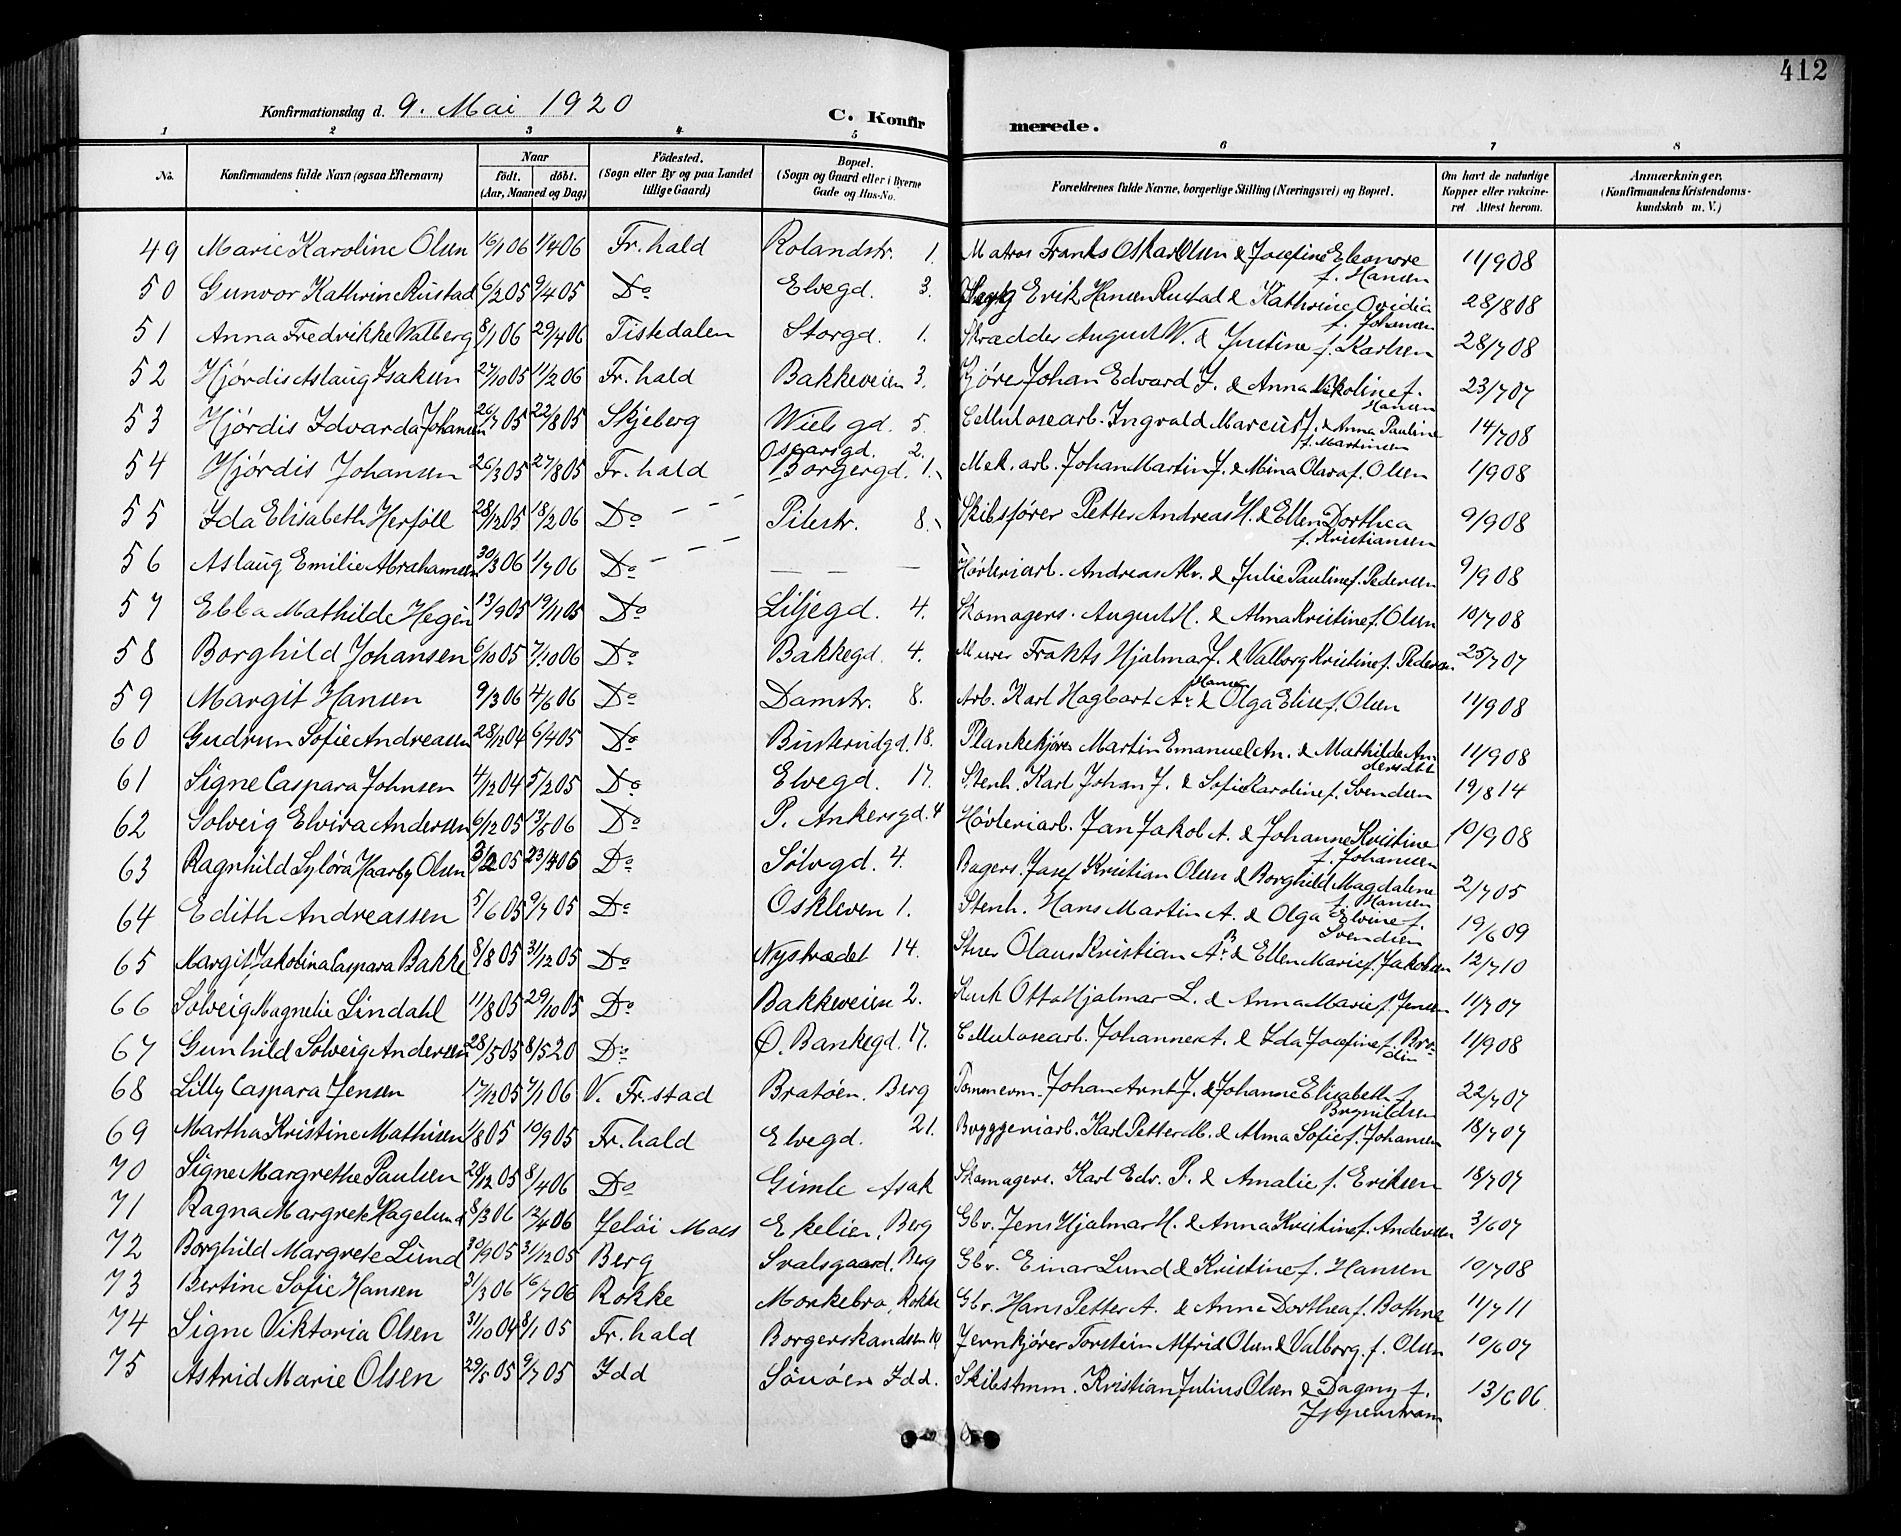 412
Konfirmationsdag d. 9. Mai 1920
C. Konfirmerede.
1 2 3 4 5 6 7 8
No. Konfirmandens fulde Navn (ogsaa Efternavn) Naar født. døbt. (Aar, Maaned og Dag) Fødested. (Sogn eller By og paa Landet tillige Gaard) Bopæl. (Sogn og Gaard eller i Byerne Gade og Hus-No. Forældrenes fulde Navne, borgerlige Stilling (Næringsvei) og Bopæl. Om havt de naturlige Kopper eller vakcineret. Attest herom. Anmærkninger, (Konfirmandens Kristendomskundskab m. V.)
49 Marie Karoline Olsen 16/1 06 1/4 06 Fr.hald Rolandstr. 1. Matros Frants Oskar Olsen & Josefine Eleonore f. Hansen 11/9 08
50 Gunvor Kathrine Rustad 6/2 05 9/4 05 Do Elvegd. 3. Erik Hansen Rustad & Kathrine Ovidia f. Johansen 28/8 08
51 Anna Fredrikke Walberg 8/1 06 29/4 06 Tistedalen Storgd. 1. Skrædder August W. & Justine f. Karlsen 28/7 08
52 Hjørdis Aslaug Isaksen 27/10 05 11/2 06 Fr.hald Bakkeveien 3. Kjører Johan Edvard I. & Anna Nikoline f. Hansen 23/7 07
53 Hjørdis Edvarda Johansen 26/7 05 22/8 05 Skjeberg Wiels gd. 5. Cellulosearb. Ingvald Marcus J. & Anna Pauline f. Martinsen 14/7 08
54 Hjørdis Johansen 26/3 05 27/8 05 Fr.hald Oscarsgd. 2. Borgergd. 1. Mek. arb. Johan Martin J. & Mina Olava f. Olsen 1/9 08
55 Ida Elisabeth Herføll 28/12 05 18/2 06 Do Pilestr. 8. Skibsfører Petter Andreas H. & Ellen Dorthea f. Kristiansen 9/9 08
56 Aslaug Emilie Abrahamsen 30/3 06 1/7 06 Do — — — Høvleriarb. Andreas Abr. & Julie Pauline f. Pedersen 9/9 08
57 Ebba Mathilde Hegin 13/9 05 19/11 05 Do Liljegd. 4. Skomagers. August H. & Alma Kristine f. Olsen 10/7 08
58 Borghild Johansen 6/10 05 7/10 06 Do Bakkegd. 4. Murer Frants Hjalmar J. & Valborg Kristine f. Pedersen 25/7 07
59 Margit Hansen 9/3 06 4/6 06 Do Damstr. 8. Arb. Karl Hagbart Hansen & Olga Elise f. Olsen 11/9 08
60 Gudrun Sofie Andreasen 28/12 04 6/4 05 Do Busterudgd. 18. Plankekjører Martin Emanuel An. & Mathilde Andersdtr 11/9 08
61 Signe Caspara Johnsen 4/12 04 5/2 05 Do Elvegd. 17. Stenh. Karl Johan J. & Sofie Karoline f. Svendsen 19/8 14
62 Solveig Elvira Andersen 6/12 05 13/6 06 Do P. Ankersgd. 4 Høvleriarb. Jan Jakob A. & Johanne Kristine f. Johansen 10/9 08
63 Ragnhild Syløra Haarby Olsen 3/2 05 23/4 06 Do Sølvgd. 4. Bagers. Josef Kristian Olsen & Borghild Magdalene f. Hansen 2/7 05
64 Edith Andreassen 5/6 05 9/7 05 Do Oskleven 1. Stenh. Hans Martin A. & Olga Elvine f. Svendsen 19/6 09
65 Margit Jakobina Caspara Bakke 8/8 05 31/12 05 Do Nystrædet 14. Olaus Kristian B & Ellen Marie f. Jakobsen 12/7 10
66 Solveig Magnelie Lindahl 11/8 05 29/10 05 Do Bakkeveien 2. Otto Hjalmar L. & Anna Marie f. Jensen 11/7 07
67 Gunhild Solveig Andersen 28/5 05 8/5 20 Do Ø. Bankegd. 17. Cellulosearb. Johannes A. & Ida Josefine f. Brodin 11/9 08
68 Lilly Caspara Jensen 17/12 05 7/1 06 V. Fr.stad Bratøen, Berg Tømmerm. Johan Arnt J. & Johanne Elisabeth f. Brynildsen 22/7 07
69 Martha Kristine Mathisen 1/8 05 10/9 05 Fr.hald Elvegd. 21. Bryggeriarb. Karl Petter M. & Alma Sofie f. Johansen 18/7 07
70 Signe Margrethe Paulsen 28/12 05 8/4 06 Do Gimle Asak Skomagers. Karl Edv. P. & Amalie f. Eriksen 18/7 07
71 Ragna Margrete Hagelund 8/3 06 12/4 06 Jeløi Moss Ekelien, Berg Gbr. Jens Hjalmar H. & Anna Kristine f. Andersen 3/6 07
72 Borghild Margrete Lund 30/9 05 31/12 05 Berg Svalsgaard, Berg Gbr. Einar Lund & Kristine f. Hansen 10/7 08
73 Bertine Sofie Hansen 31/3 06 16/7 06 Rokke Monkebro, Rokke Gbr. Hans Petter A. & Anne Dorthea f. Bothne 11/7 11
74 Signe Viktoria Olsen 31/10 04 8/1 05 Fr.hald Borgerskandsen 10 Jernkjører Torstein Alfrid Olsen & Valborg f. Olsen 10/6 07
75 Astrid Marie Olsen 29/5 05 9/7 05 Idd Sørøen Idd. Skibstmm. Kristian Julius Olsen & Dagny f. 13/6 06.